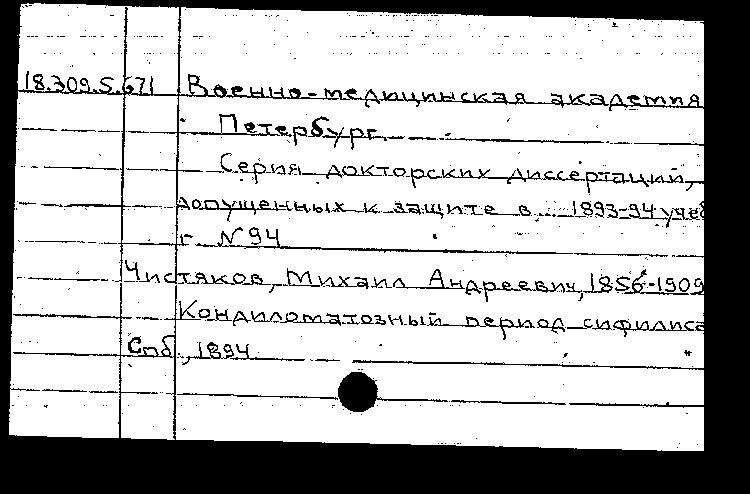 18.309.5.671 Военно-медицинская академия
Петербург.
Серия докторских диссертаций,
допущенных к защите в ... 1893-94 учеб
г. N 94
Чистяков, Михаил Андреевич, 1856-1909
Кондиломатозный период сифилиса
Спб., 1894